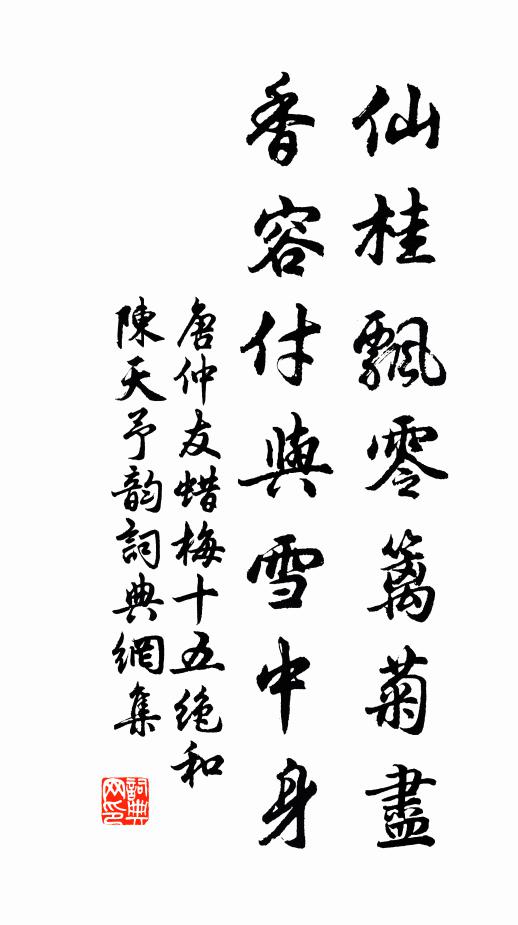 仙桂飄零籬菊盡
香容付與雪中身
唐仲友蜡梅十五绝和
陳天予韵詞典網集
詞典
网印